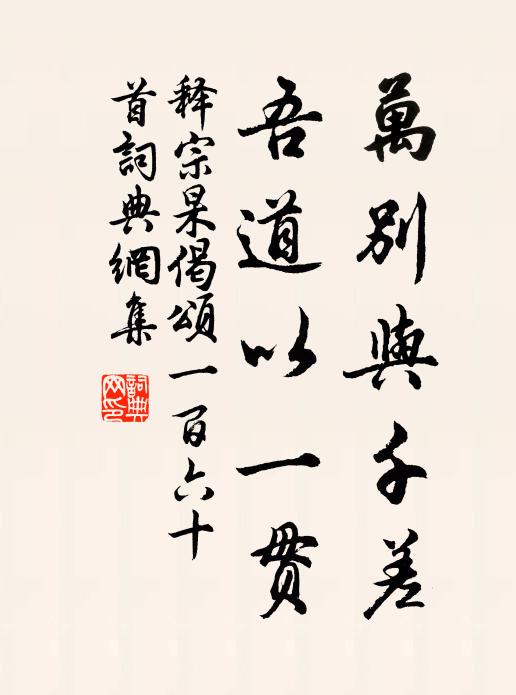 萬別與千差
吾道以一貫
释宗杲偈頌一百六十
首詞典網集
詞典
网印